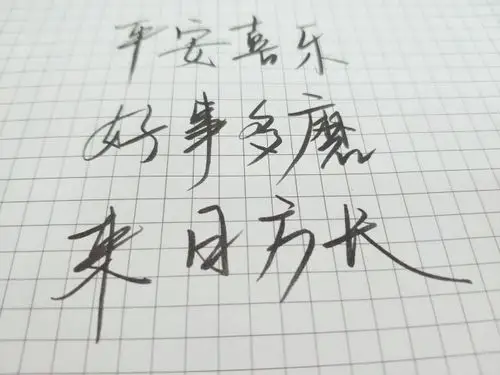 平安喜乐
好事多磨
来日方长